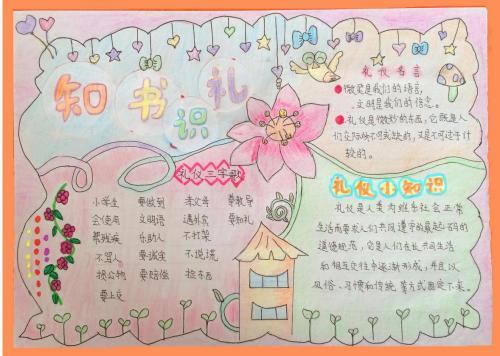 知书识礼
礼仪名言
微笑是我们的语言,
文明是我们的信念。
礼仪是微妙的东西,它既是人
们交际所不可或缺的,又是不可过于计
较的。
礼仪三字歌
小学生 要做到 孝父母 要教导
会使用 文明语 遇外宾 要知礼
帮残疾 乐助人 不打架
不骂人 要诚实 不说谎
损公物 要赔偿 拾东西
要上交
礼仪小知识
礼仪是人类为维系社会正常
生活而要求人们共同遵守的最起码的
道德规范,它是人们在长期共同生活
和相互交往中逐渐形成,并且以
风俗、习惯和传统等方式固定下来。